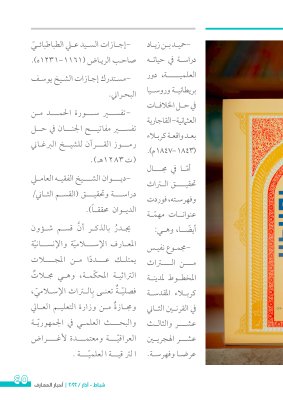 -حميد بن زياد
دراسة في حياته
العلمية، دور
بريطانية وروسيا
في حل الخلافات
العثمانية-القاجارية
بعد واقعة كربلاء
(١٨٤٣-١٨٤٧م).
أمّا في مجال
تحقيق التراث
وفهرسته، فوردت
عنوانات مهمّة
أيضًا، وهي:
-مجموع نفيس
من التراث
المخطوط لمدينة
كربلاء المقدسة
في القرنين الثاني
عشر والثالث
عشر الهجريين
عرضا وفهرسة.
-إجازات السيد علي الطباطبائيّ
صاحب الرياض (١١٦١-١٢٣١هـ).
-مستدرك إجازات الشيخ يوسف
البحراني.
-تفسير سورة الحمد من
تفسير مفاتيح الجنان في حل
رموز القرآن للشيخ البرغاني
(ت ١٢٨٣هـ).
-ديوان الشيخ الفقيه العاملي
دراسة وتحقيق (القسم الثاني/
الديوان محققاً).
يجدرُ بالذكر أنّ قسم شؤون
المعارف الإسلاميّة والإنسانيّة
يمتلك عددًا من المجلات
التراثية المحكّمة، وهي مجلاتٌ
فصليّةٌ تعنى بالتراث الإسلامي،
ومجازةٌ من وزارة التعليم العالي
والبحث العلمي في جمهوريّة
العراقيّة ومعتمدة لأغراض
الترقية العلميّة.
شباط - آذار / ٢٠٢٢ | أخبار المعارف